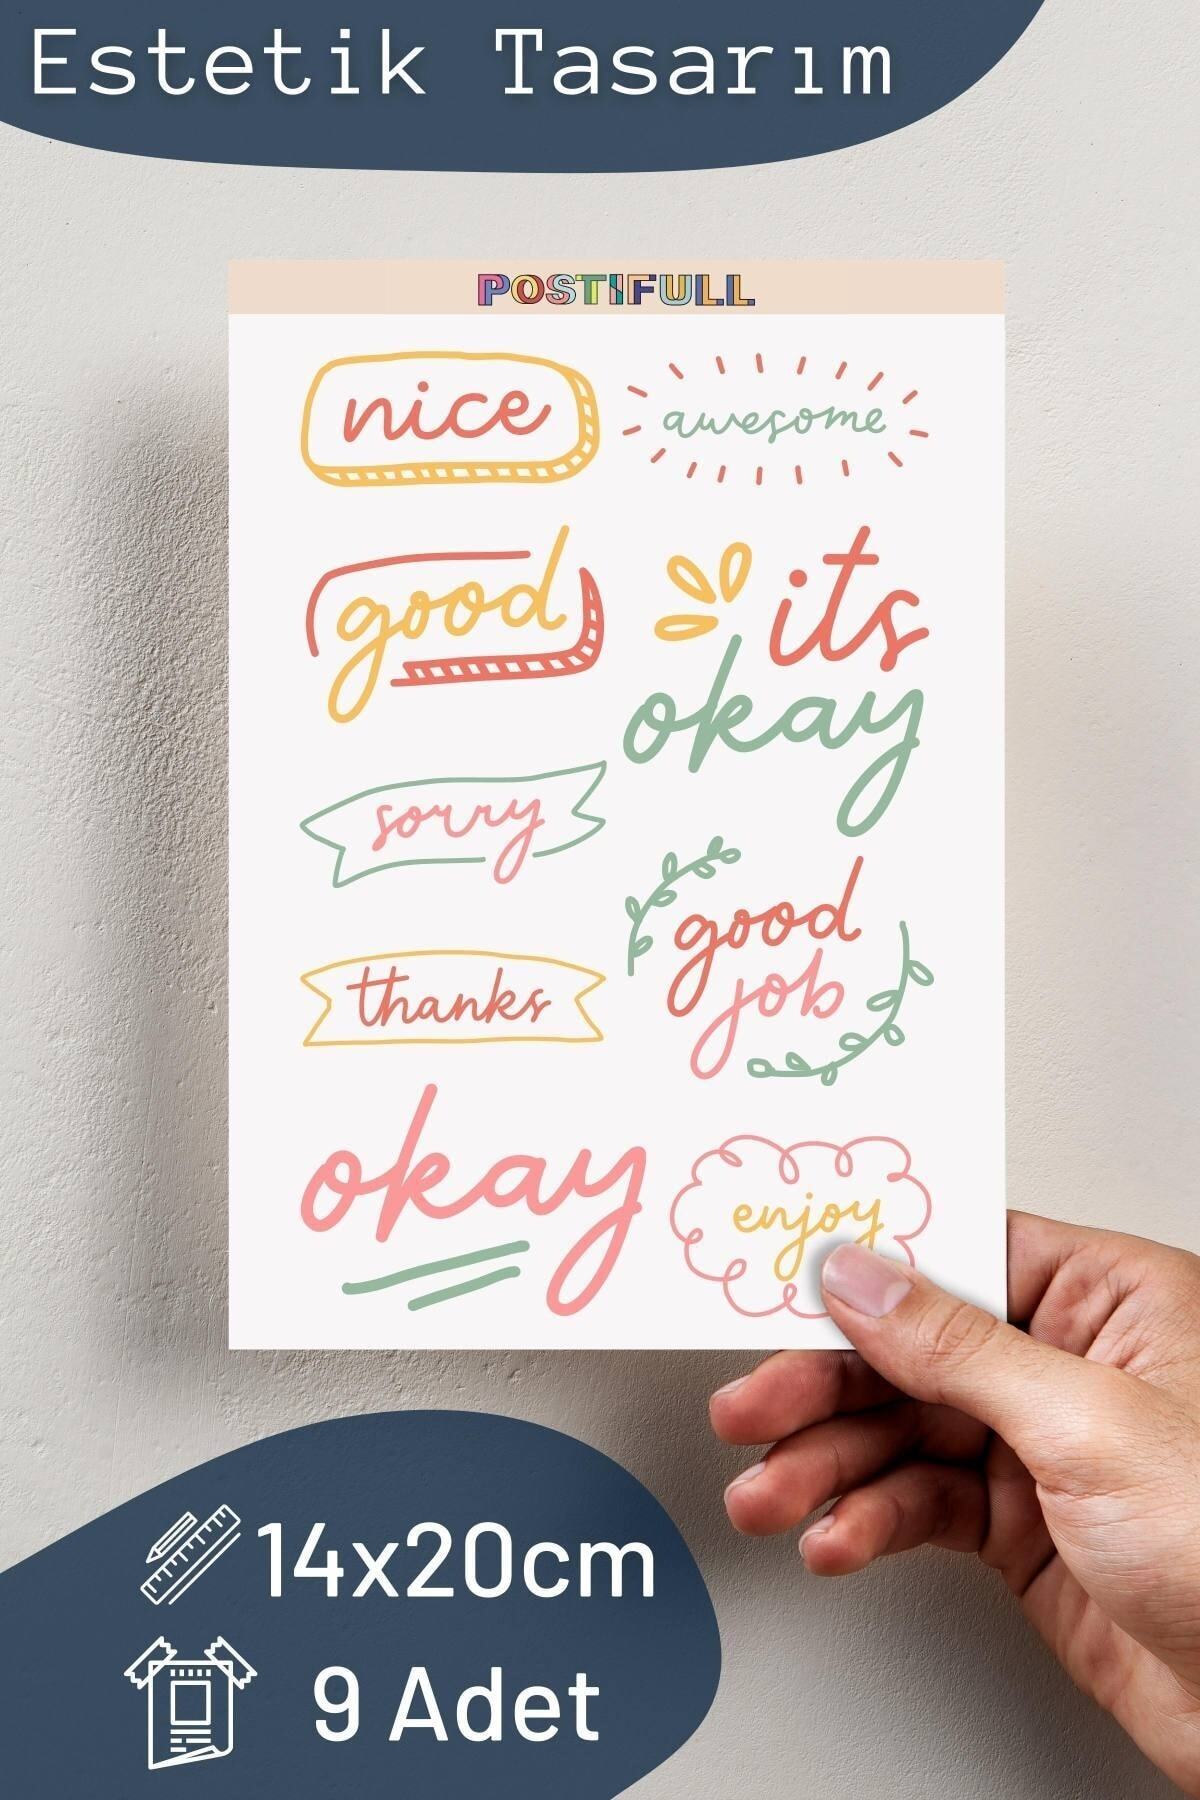 Estetik Tasarım
POSTIFULL
nice
awesome
good
its
okay
sorry
good
job
thanks
okay
enjoy
14x20cm
9 Adet